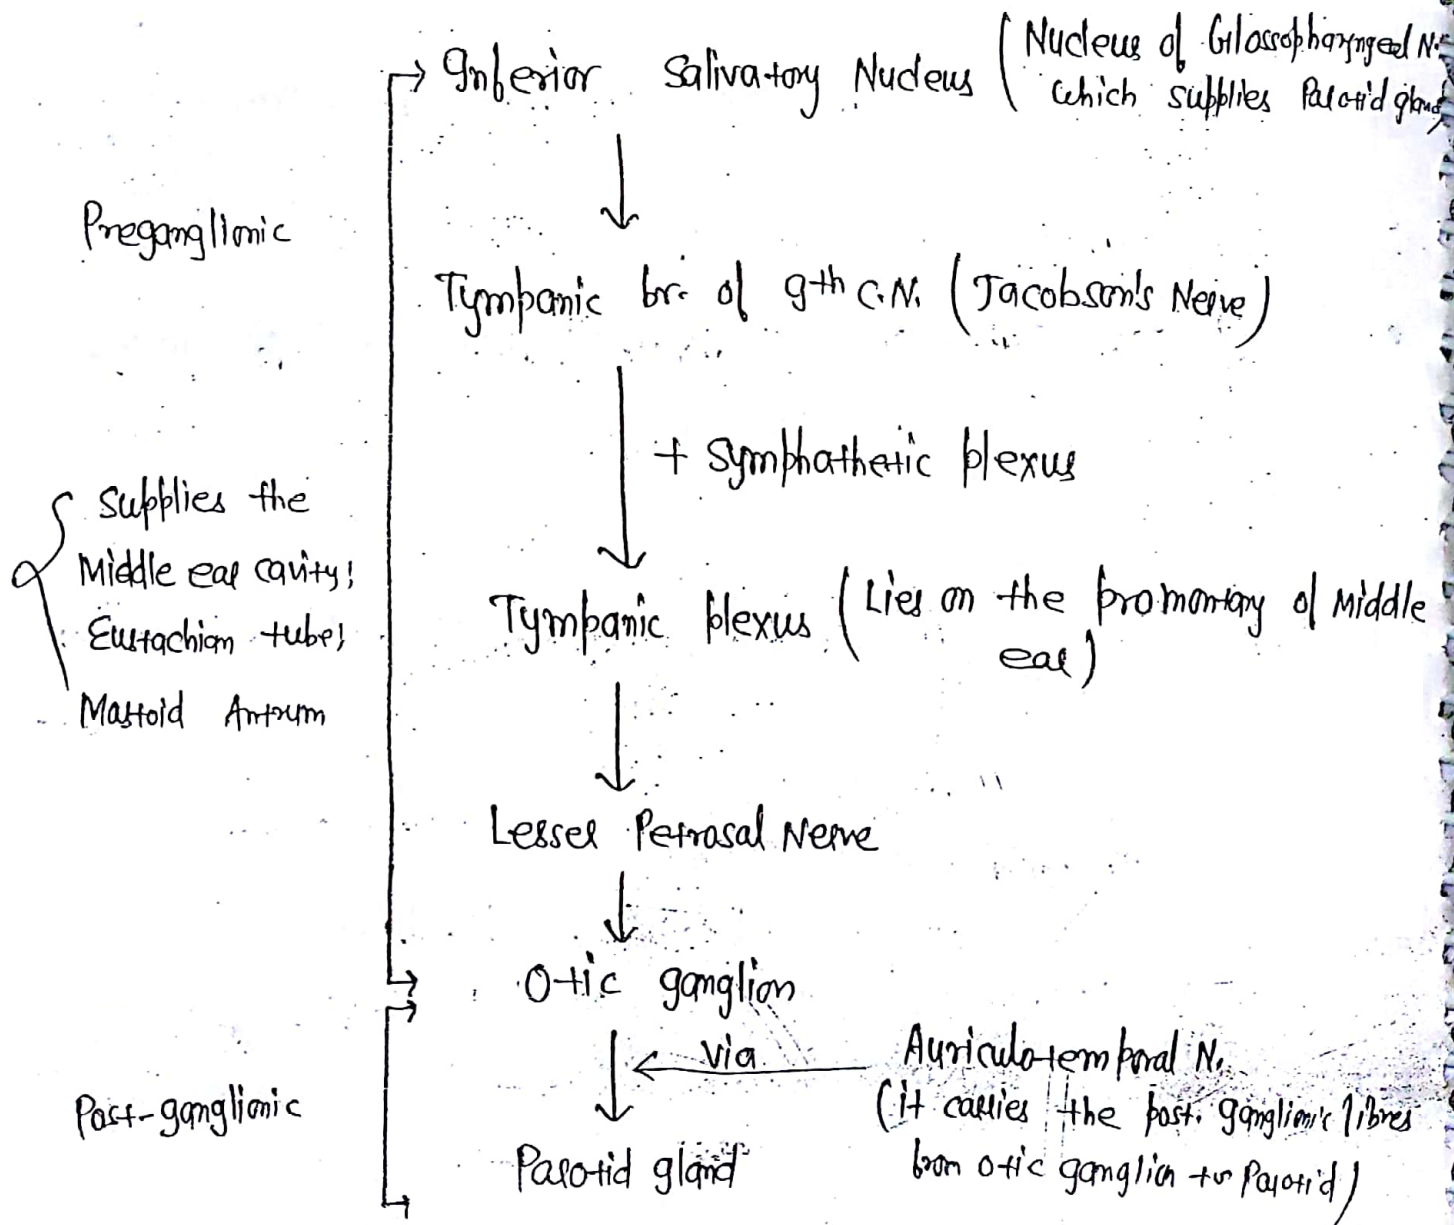 Inferior Salivatory Nucleus (Nucleus of Glossopharyngeal N.
which supplies Parotid gland)
Preganglionic
Tympanic br. of 9th C.N. (Jacobson's Nerve)
+ Symphathetic plexus
Supplies the
Middle ear cavity;
Eustachian tube;
Mastoid Antrum
Tympanic plexus (Lies on the promontory of Middle
ear)
Lesser Petrosal Nerve
Otic ganglion
via
Auriculotemporal N.
(it carries the post. ganglionic fibres
from otic ganglion to Parotid)
Post-ganglionic
Parotid gland